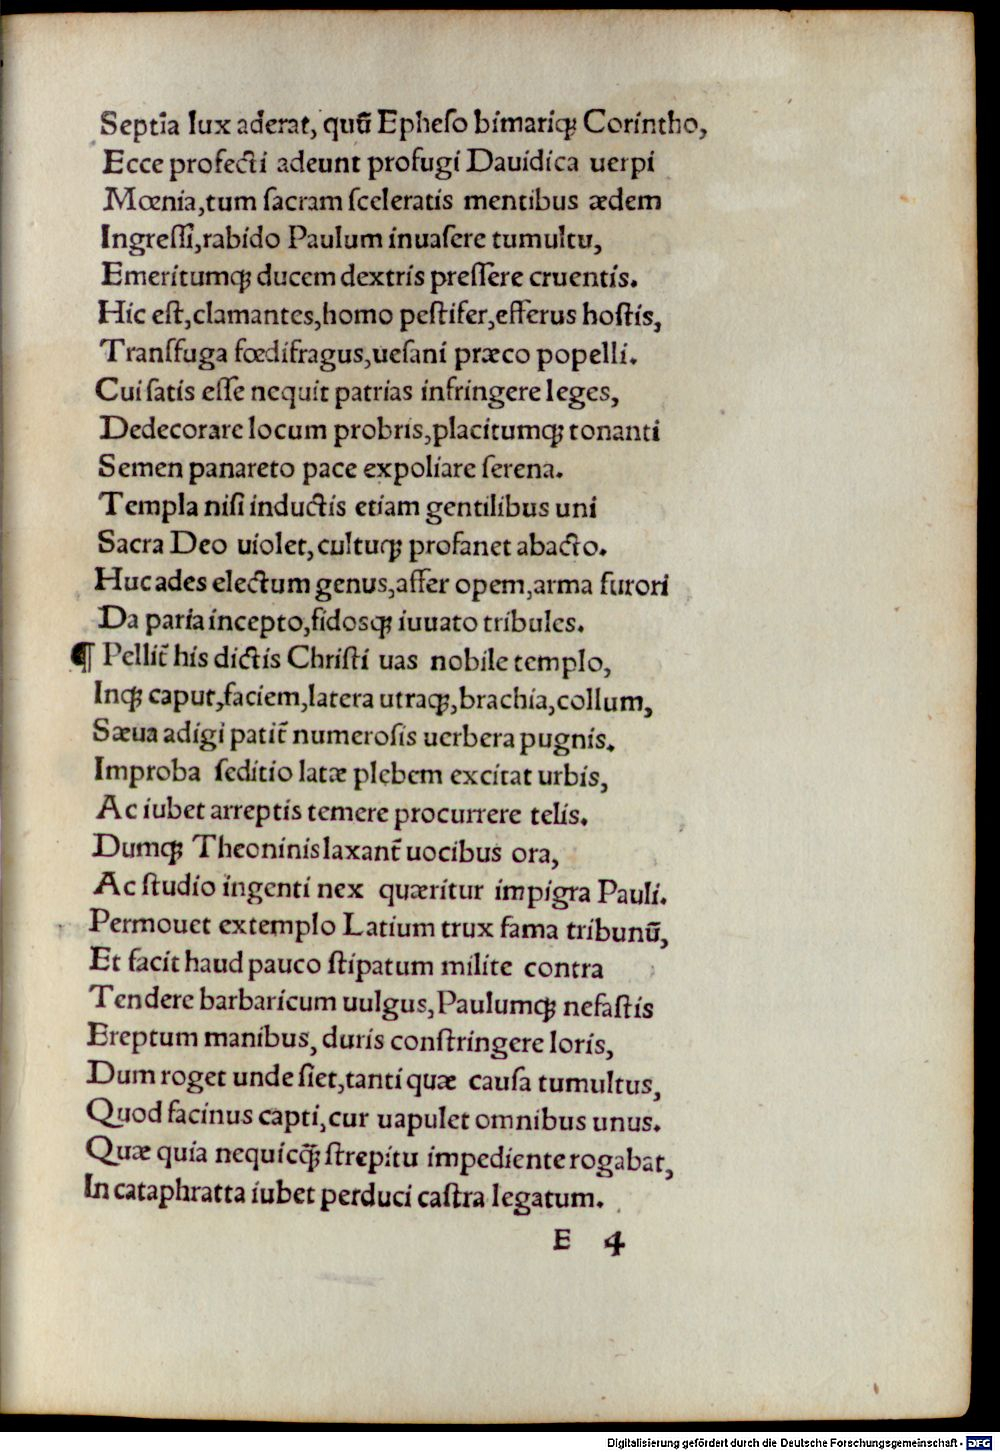 Septīa lux aderat, quū Epheſo bimariqꝫ Corintho,
Ecce profecti adeunt profugi Dauidica uerpi
Mœnia,tum ſacram ſceleratis mentibus ædem
Ingreſſi,rabido Paulum inuaſere tumultu,
Emeritumqꝫ ducem dextris preſſere cruentis.
Hic eſt,clamantes,homo peſtifer,efferus hoſtis,
Tranſfuga fœdifragus,ueſani præco popelli.
Cui ſatis eſſe nequit patrias infringere leges,
Dedecorare locum probris,placitumqꝫ tonanti
Semen panareto pace expoliare ſerena.
Templa niſi inductis etiam gentilibus uni
Sacra Deo uiolet,cultuqꝫ profanet abacto.
Huc ades electum genus,affer opem,arma furori
Da paria incepto,fidosqꝫ iuuato tribules.
¶ Pellit̄ his dictis Chriſti uas nobile templo,
Inqꝫ caput,faciem,latera utraqꝫ,brachia,collum,
Sæua adigi patit̄ numeroſis uerbera pugnis.
Improba ſeditio latæ plebem excitat urbis,
Ac iubet arreptis temere procurrere telis.
Dumqꝫ Theoninis laxant̄ uocibus ora,
Ac ſtudio ingenti nex quæritur impigra Pauli.
Permouet extemplo Latium trux fama tribunū,
Et facit haud pauco ſtipatum milite contra
Tendere barbaricum uulgus,Paulumqꝫ nefaſtis
Ereptum manibus, duris conſtringere loris,
Dum roget unde ſiet,tanti quæ cauſa tumultus,
Quod facinus capti,cur uapulet omnibus unus.
Quæ quia nequicq̄ꝫ ſtrepitu impediente rogabat,
In cataphratta iubet perduci caſtra legatum.
E 4
Digitalisierung gefördert durch die Deutsche Forschungsgemeinschaft - DFG